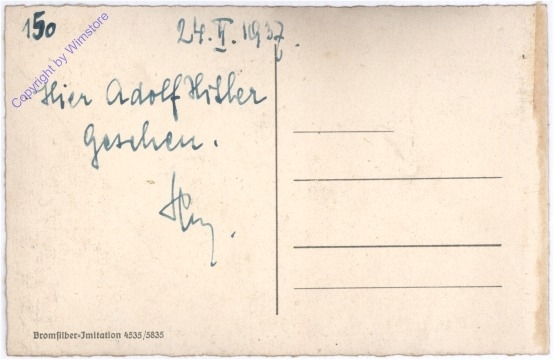 150
24. V. 1937.
Copyright by Wimstore
Hier Adolf Hitler
Gesehen.
Bromsilber-Imitation 4535/5835